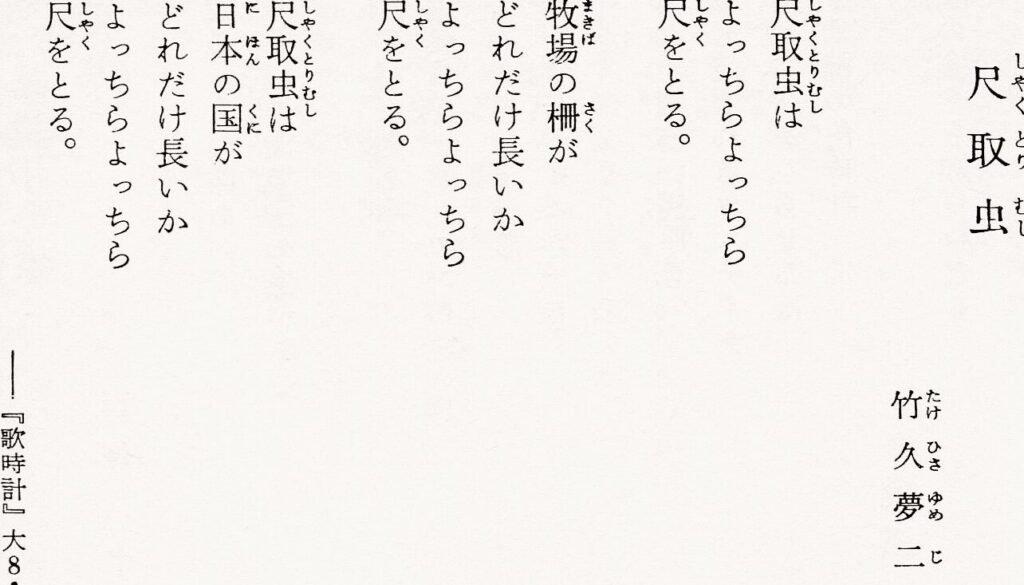 尺取虫
竹久夢二
尺取虫は
よっちらよっちら
尺をとる。
牧場の柵が
どれだけ長いか
よっちらよっちら
尺をとる。
尺取虫は
日本の国が
どれだけ長いか
よっちらよっちら
尺をとる。
――『歌時計』大8・